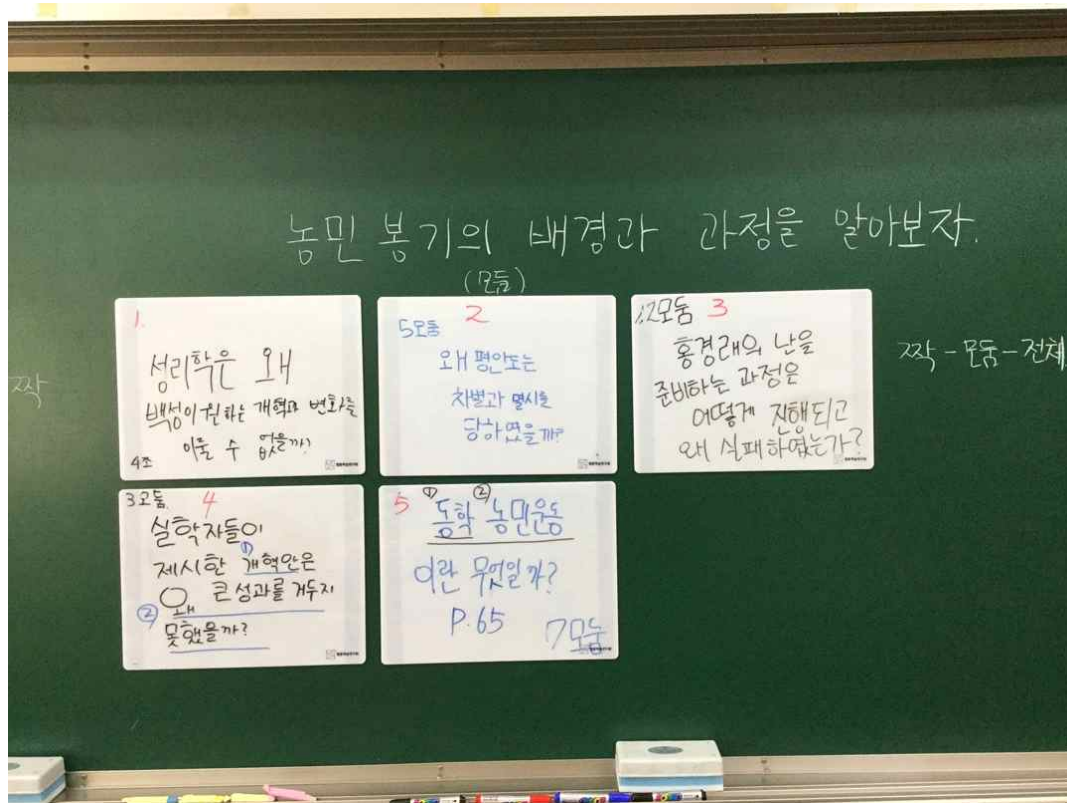 농민 봉기의 배경과 과정을 알아보자.
(모둠)
짝
짝-모둠-전체
1.
성리학은 왜
백성이 원하는 개혁과 변화를
이룰 수 없을까?
4조
5모둠 2
왜 평안도는
차별과 멸시를
당하였을까?
1,2모둠 3
홍경래의 난을
준비하는 과정은
어떻게 진행되고
왜 실패하였는가?
3모둠 4
실학자들이
제시한 ① 개혁안은
왜 큰 성과를 거두지
② 못했을까?
5 ① 동학 ② 농민운동
이란 무엇일까?
P.65
7모둠